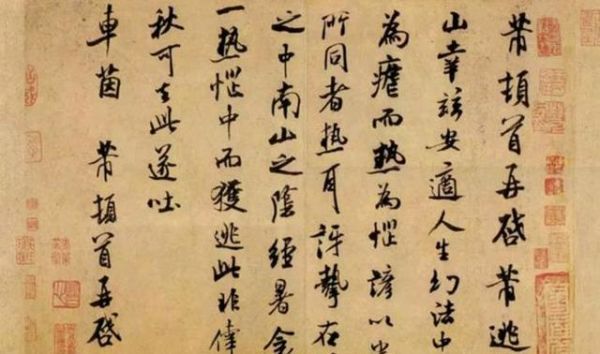 芾頓首再啓芾逃
山幸茲安適人生幻法中
為瘧而熱為惱諺以
所同者熱耳訝摯在
之中南山之陰經暑衾
一熱惱中而獲逃此非偉
秋可去此遂吐
車茵 芾頓首再啓